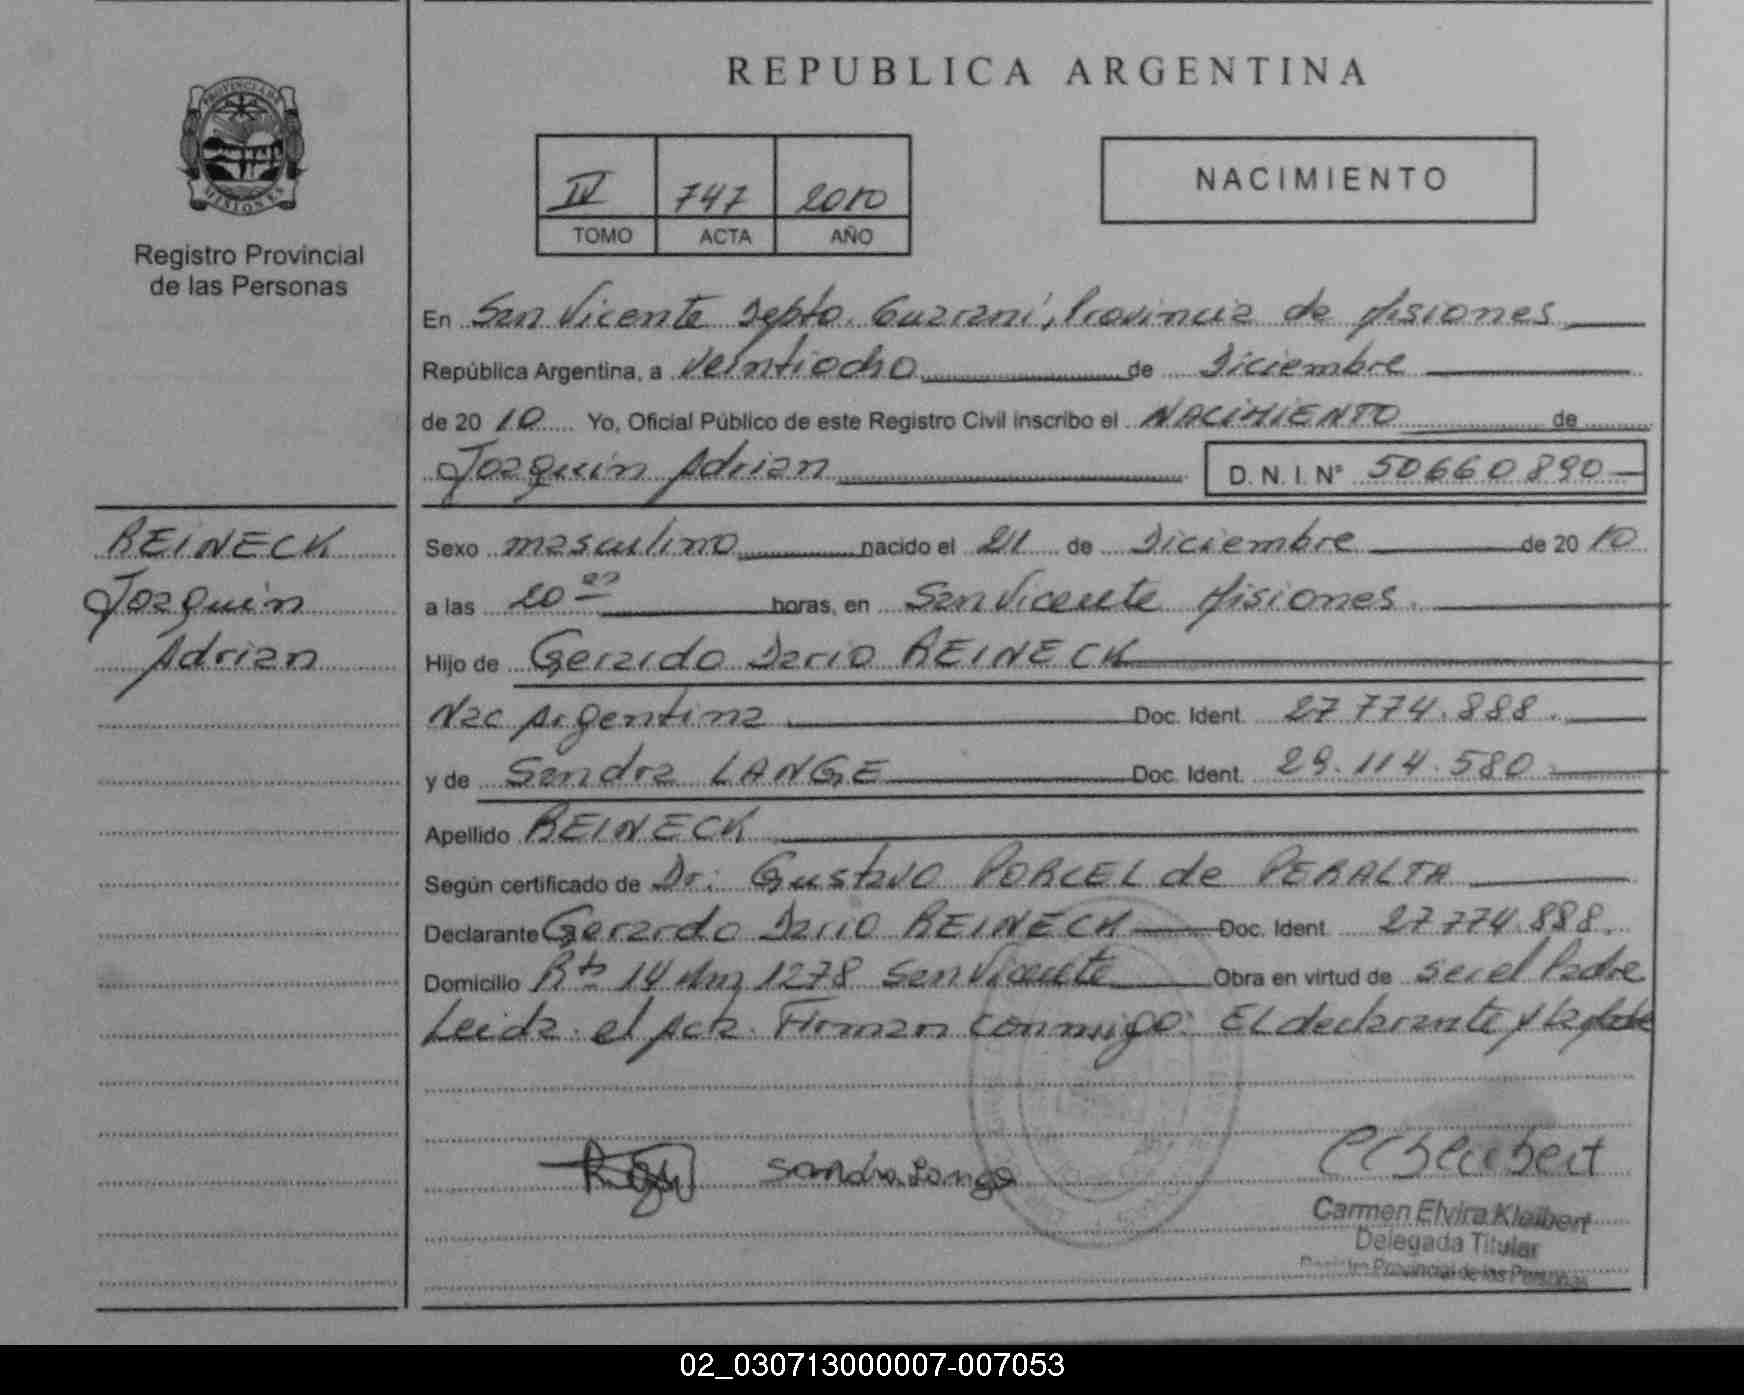 REPUBLICA ARGENTINA
PROVINCIA DE MISIONES
Registro Provincial
de las Personas
IV 747 2010
TOMO ACTA AÑO
NACIMIENTO
En San Vicente Depto. Guaraní, Provincia de Misiones
República Argentina, a Veintiocho de Diciembre
de 2010 Yo, Oficial Público de este Registro Civil inscribo el NACIMIENTO de
Joaquin Adrian D. N. I. N° 50660890
REINECK
Joaquin
Adrian
Sexo masculino nacido el 21 de Diciembre de 2010
a las 20 horas, en San Vicente Misiones.
Hijo de Gerardo Dario REINECK
Nac Argentina Doc. Ident. 27774.888.
y de Sandra LANGE Doc. Ident. 29.114.580
Apellido REINECK
Según certificado de Dr: Gustavo PORCEL de PERALTA
Declarante Gerardo Dario REINECK Doc. Ident. 27774.888.
Domicilio Rta 14 Km 1278 San Vicente Obra en virtud de ser el Padre
Leida el Acta. Firman conmigo: EL declarante y La Madre
Sandra Lange
Carmen Elvira Kleibert
Delegada Titular
Registro Provincial de las Personas
02_030713000007-007053